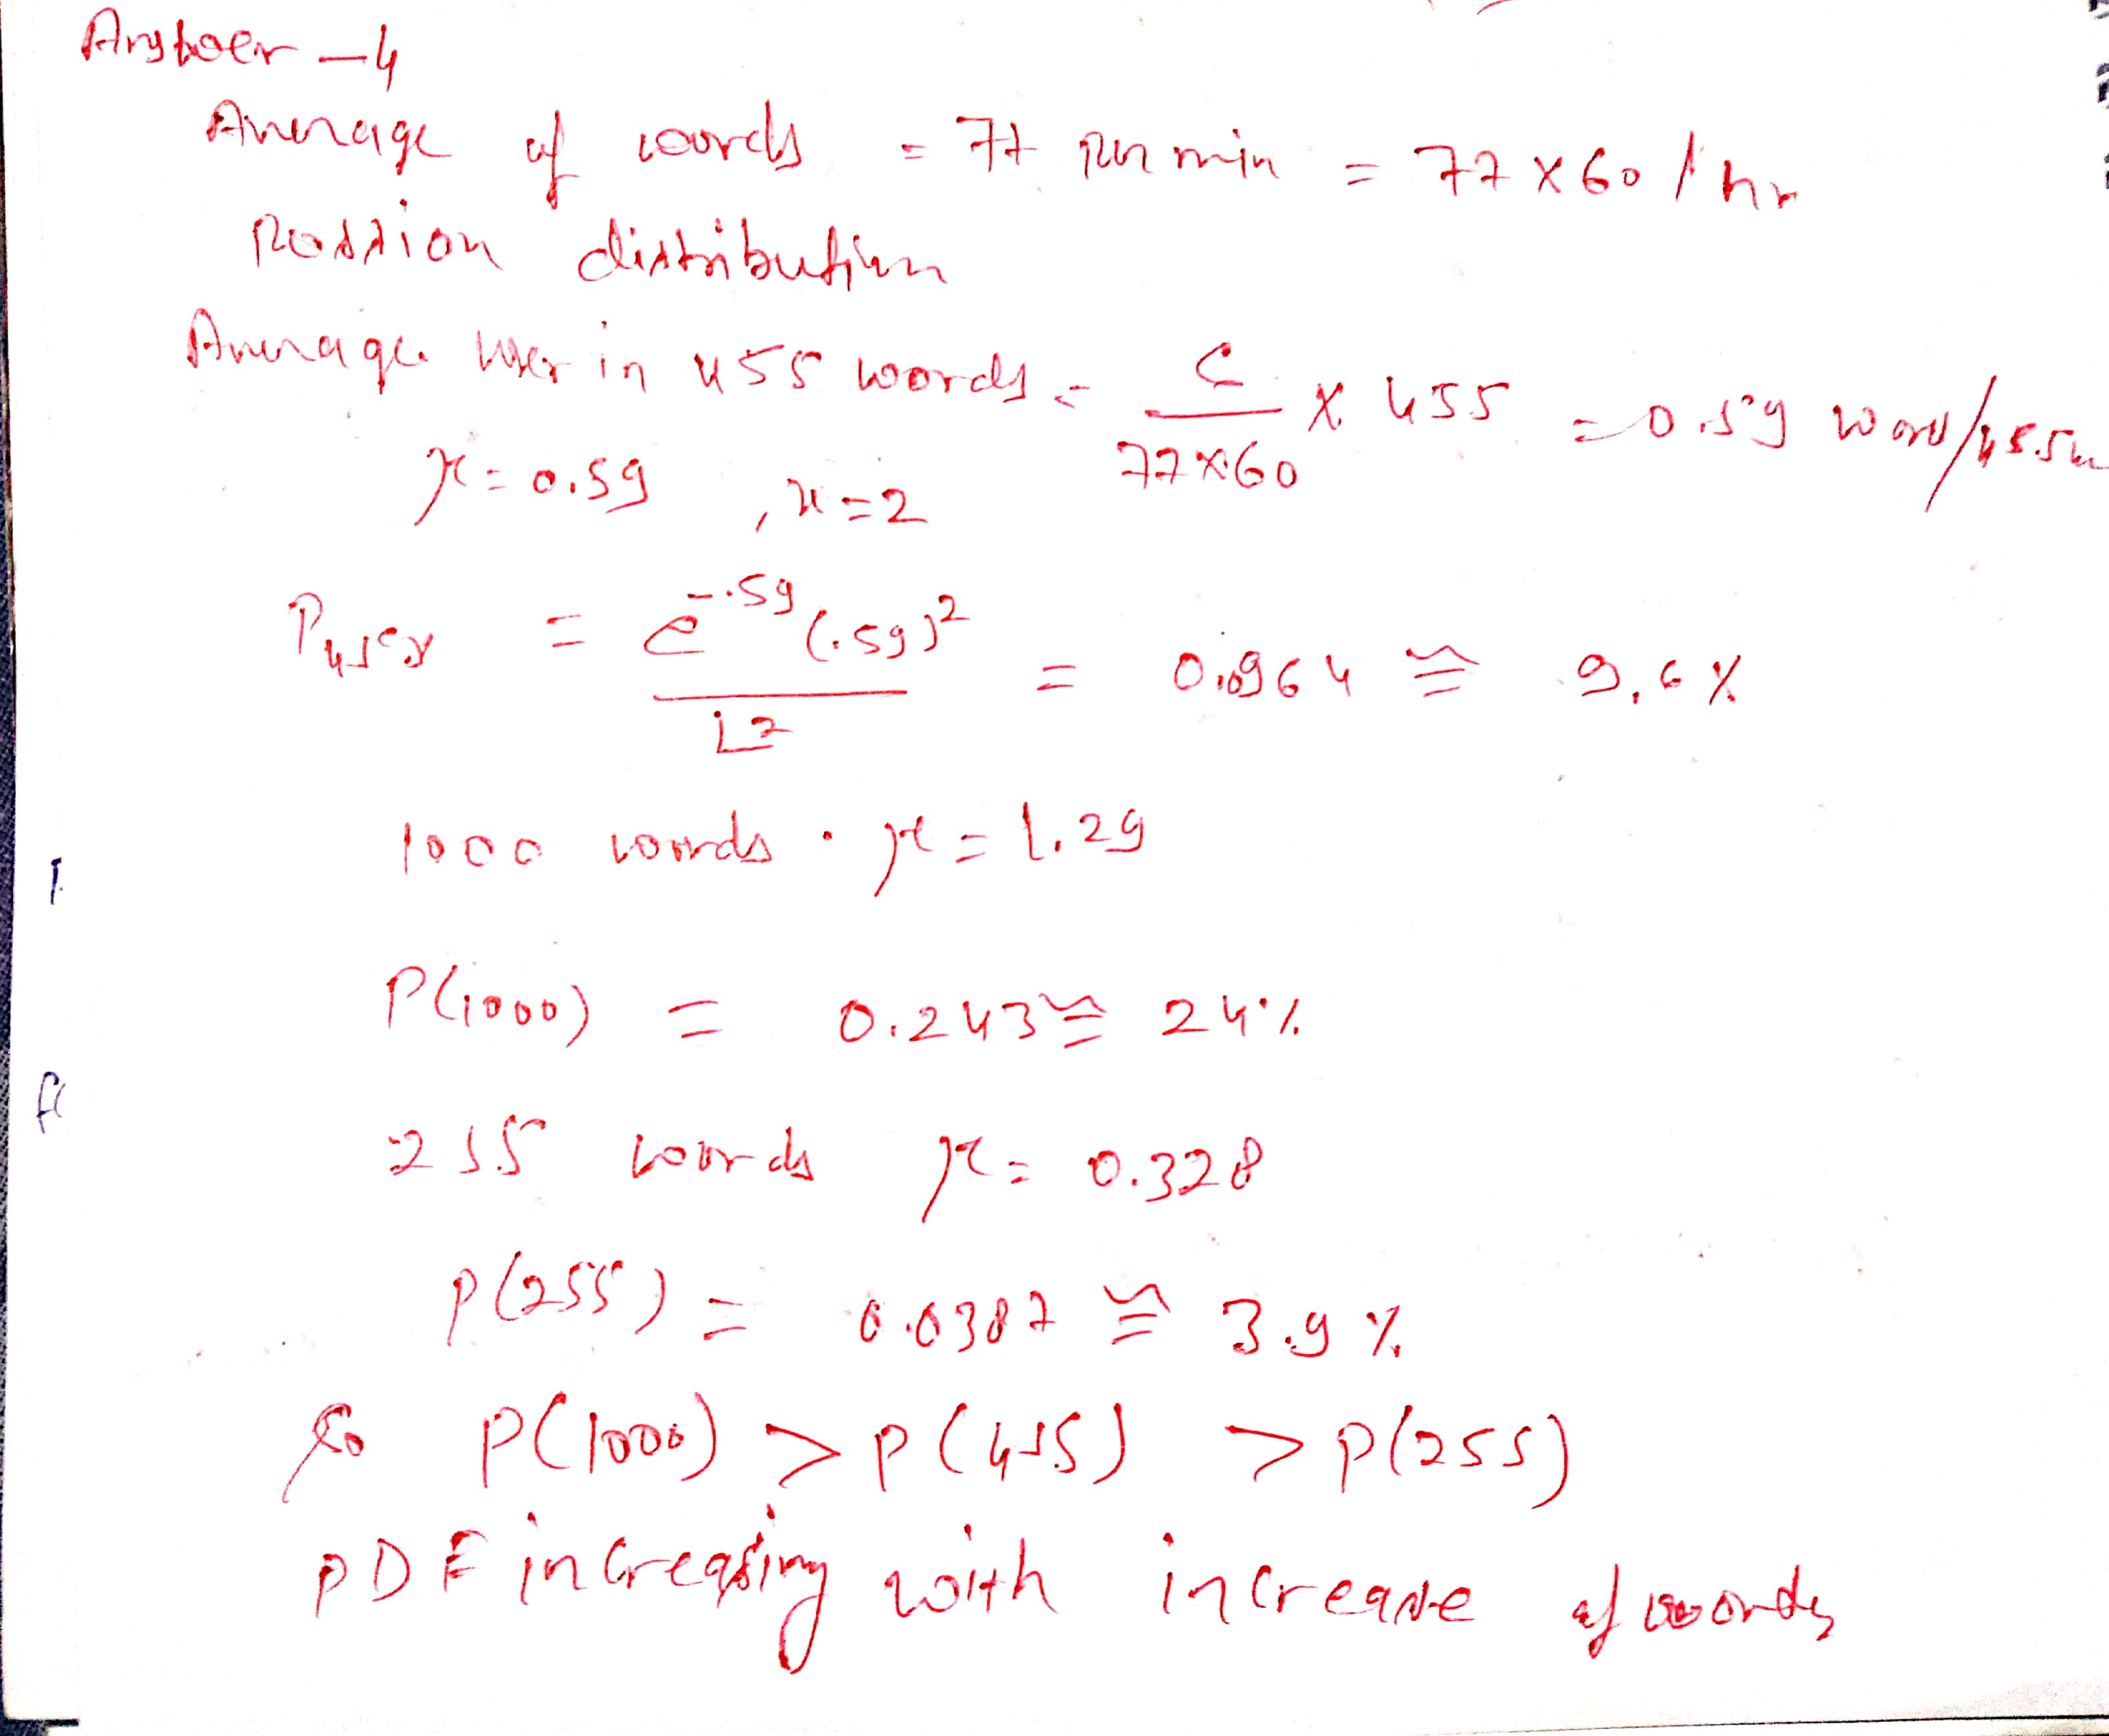 Answer - 4
Average of words = 77 per min = 77 x 60 / hr
Possion distribution
Average in 455 words = × 455 = 0.59
77×60
μ = 0.59 , x = 2
P455 = e^-.59 (.59)^2 / ∟2 = 0.0964 ≅ 9.6 %
1000 words . μ = 1.29
P(1000) = 0.243 ≅ 24%
255 words μ = 0.328
P(255) = 0.0387 ≅ 3.9 %
So P(1000) > P(455) > P(255)
PDF increasing with increase of words